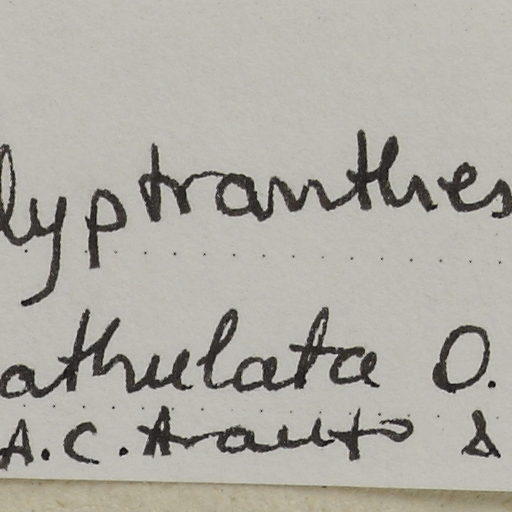 lyptranthes
athulata O.
A.C. Araujo &